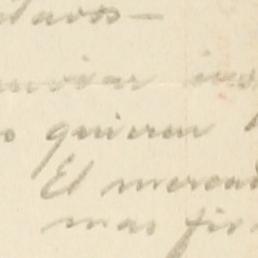 tavos—
enviar ins
o quieren
El mercad
mas fir